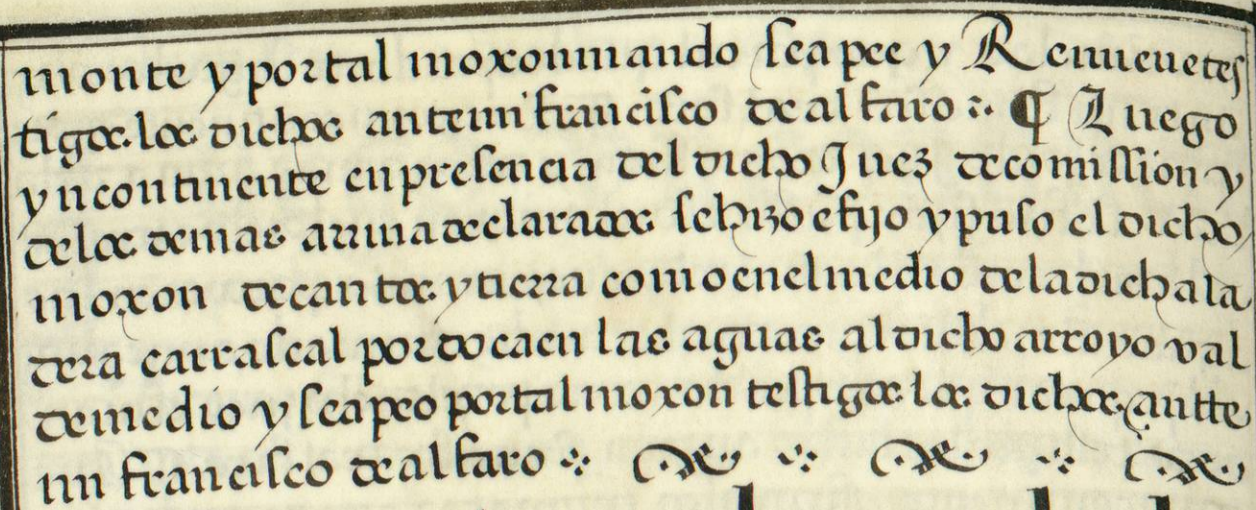 monte y portal moxon mando se apee y Renueve tes
tigos. los dichos ante mi francisco de alfaro ⁘ ¶ Luego
yncontinente en presencia del dicho Juez de comission y
de los demas arriva declarados se hizo e fijo y puso el dicho
moxon de cantos. y tierra como en el medio de la dicha la
dera carrascal por do caen las aguas al dicho arroyo val
de medio y se apeo por tal moxon testigos los dichos. antte
mi francisco de alfaro ⁘